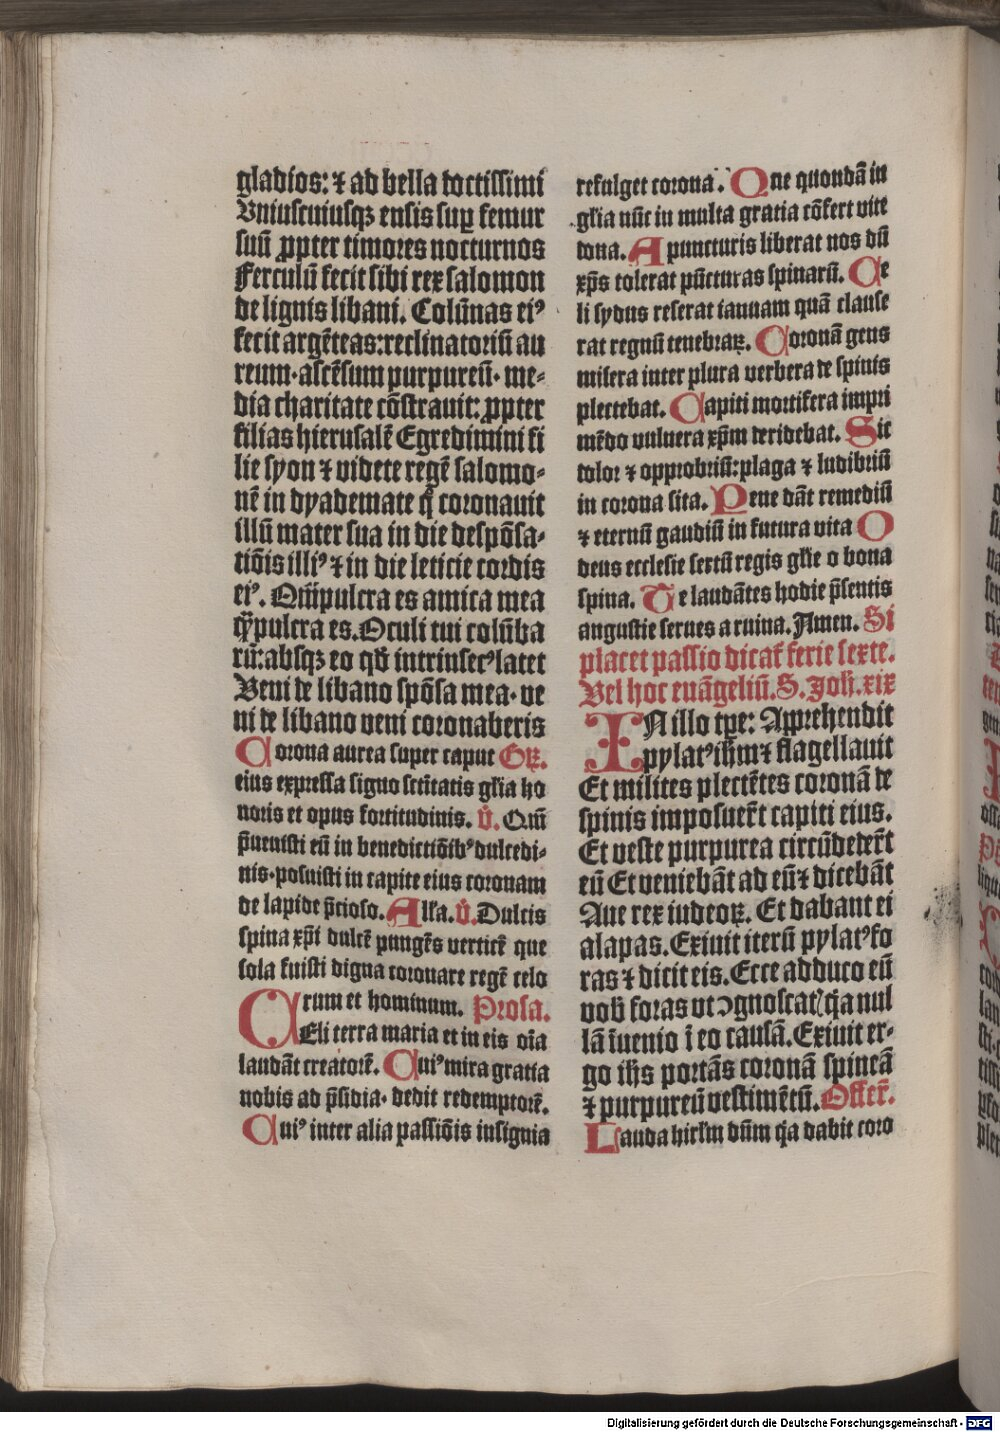 gladios: ⁊ ad bella doctissimi
Vniuscuiusqꝫ ensis suꝑ femur
suū ꝓpter timores nocturnos
Ferculū fecit sibi rex salomon
de lignis libani. Colūnas eiꝰ
fecit argēteas: reclinatoriū au
reum· ascēsum purpureū· me-
dia charitate cōstrauit: ꝓpter
filias hierusalē Egredimini fi
lie syon ⁊ videte regē salomo-
nē in dyademate q̄ coronauit
illū mater sua in die despōsa-
tiōis illiꝰ ⁊ in die leticie cordis
eiꝰ. Qm̄ pulcra es amica mea
q̄ȝ pulcra es. Oculi tui colūba
rū: absqꝫ eo qd̄ intrinsecꝰ latet
Veni de libano spōsa mea· ve
ni de libano veni coronaberis
Corona aurea super caput Grꝫ.
eius expressa signo sctītatis glīa ho
noris et opus fortitudinis. V̄. Qm̄
p̄uenisti eū in benedictiōibꝰ dulcedi-
nis· posuisti in capite eius coronam
de lapide p̄cioso. Alla. V̄. Dulcis
spina xp̄i dulcē pungēs verticē que
sola fuisti digna coronare regē celo
rum et hominum. Prosa.
Celi terra maria et in eis oīa
laudāt creatorē. Cuiꝰ mira gratia
nobis ad p̄sidia· dedit redemptorē.
Cuiꝰ inter alia passiōis insignia
refulget corona. Que quondā in
gl̄ia nūc in multa gratia cōfert vite
dona. A puncturis liberat nos dū
xp̄s tolerat pūcturas spinarū. Ce
li sydus reserat ianuam quā clause
rat regnū tenebraꝝ. Coronā gens
misera inter plura verbera de spinis
plectebat. Capiti mortifera impri
mēdo vulnera xp̄m deridebat. Sic
dolor ⁊ opprobriū: plaga ⁊ ludibriū
in corona sita. Pene dāt remediū
⁊ eternū gaudiū in futura vita O
deus ecclesie sertū regis glīe o bona
spina. Te laudātes hodie p̄sentis
angustie serues a ruina. Amen. Si
placet passio dicat̄ ferie sexte.
Vel hoc euāgeliū. S. Joh̄. xix
IN illo tp̄e: Apprehendit
pylatꝰ ih̄m ⁊ flagellauit
Et milites plectētes coronā de
spinis imposuer̄t capiti eius.
Et veste purpurea circūdeder̄t
eū Et veniebāt ad eū ⁊ dicebāt
Aue rex iudeoꝝ. Et dabant ei
alapas. Exiuit iterū pylatꝰ fo
ras ⁊ dicit eis. Ecce adduco eū
vob̄ foras vt ꝯgnoscat̄ q̄a nul
lā īuenio ī eo causā. Exiuit er-
go ih̄s portās coronā spineā
⁊ purpureū vestimētū. Offer̄.
Lauda hirlm̄ dūm q̄a dabit coro
Digitalisierung gefördert durch die Deutsche Forschungsgemeinschaft - DFG